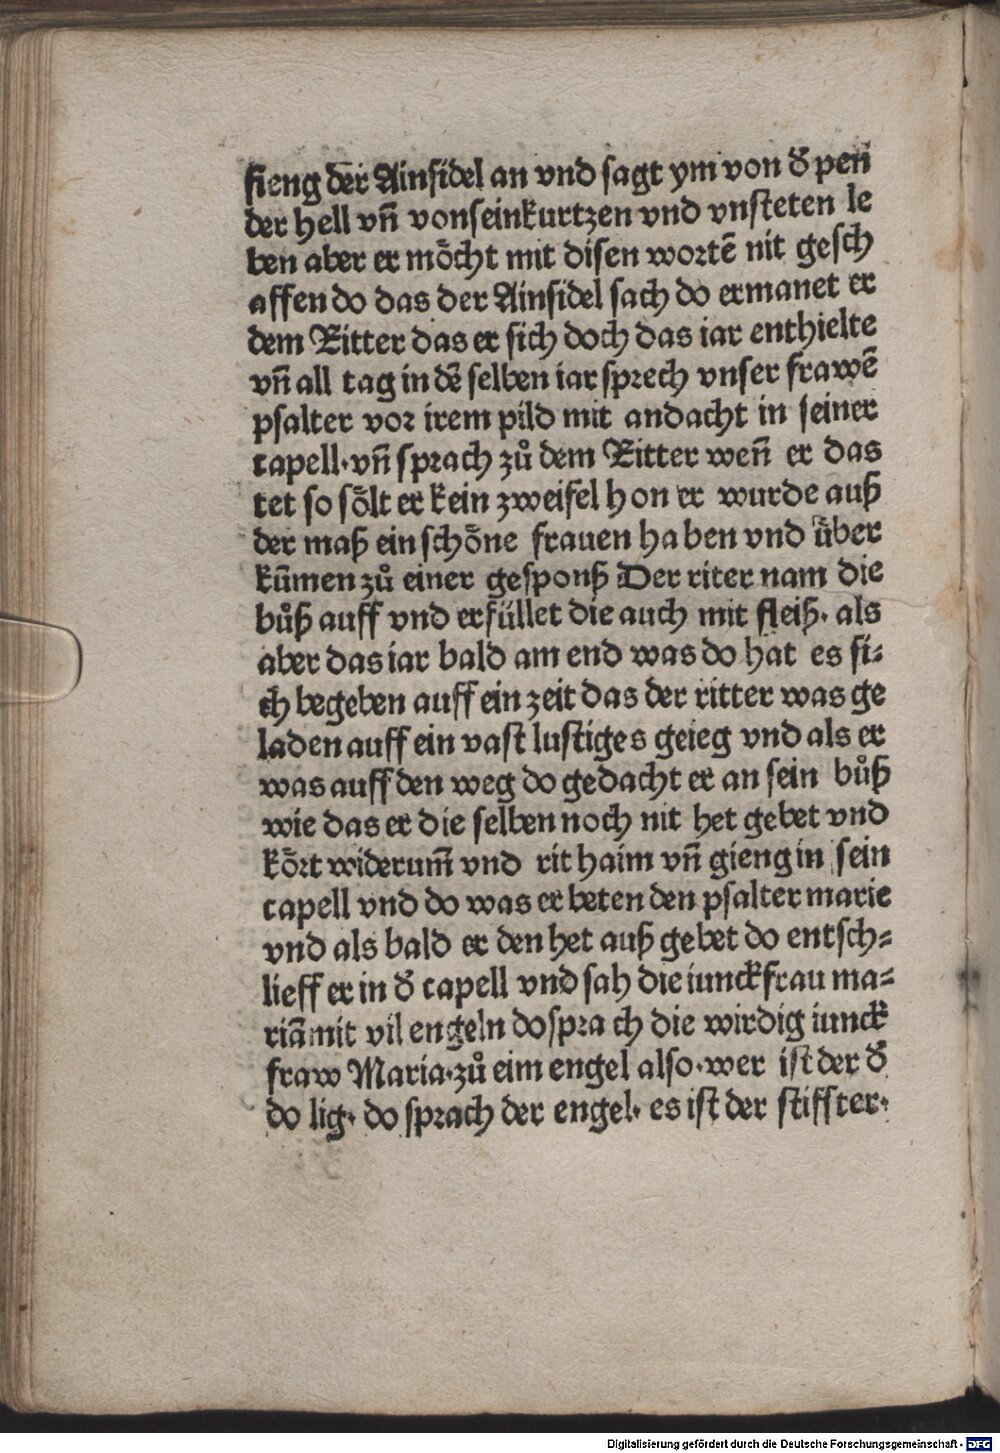 fieng der Ainsidel an vnd sagt ym von d̄ pen
der hell vn̄ vonseinkurtzen vnd vnsteten le
ben aber er mo᷑cht mit disen wortē nit gesch
affen do das der Ainsidel sach do ermanet er
dem Ritter das er sich doch das iar enthielte
vn̄ all tag in dē selben iar sprech vnser frawē
psalter vor irem pild mit andacht in seiner
capell·vn̄ sprach zů dem Ritter wen̄ er das
tet so sölt er kein zweifel hon er wurde auß
der maß ein schöne frauen haben vnd über
kūmen zů einer gesponß Der riter nam die
bůß auff vnd erfüllet die auch mit fleiß· als
aber das iar bald am end was do hat es si⸗
ch begeben auff ein zeit das der ritter was ge
laden auff ein vast lustiges geieg vnd als er
was auff den weg do gedacht er an sein bůß
wie das er die selben noch nit het gebet vnd
kört widerum̄ vnd rit haim vn̄ gieng in sein
capell vnd do was er beten den psalter marie
vnd als bald er den het auß gebet do entsch⸗
lieff er in d̄ capell vnd sah die iunckfrau ma⸗
riā mit vil engeln do sprach die wirdig iunck
fraw Maria·zů eim engel also·wer ist der d̄
do lig· do sprach der engel· es ist der stiffter·
Digitalisierung gefördert durch die Deutsche Forschungsgemeinschaft - DFG